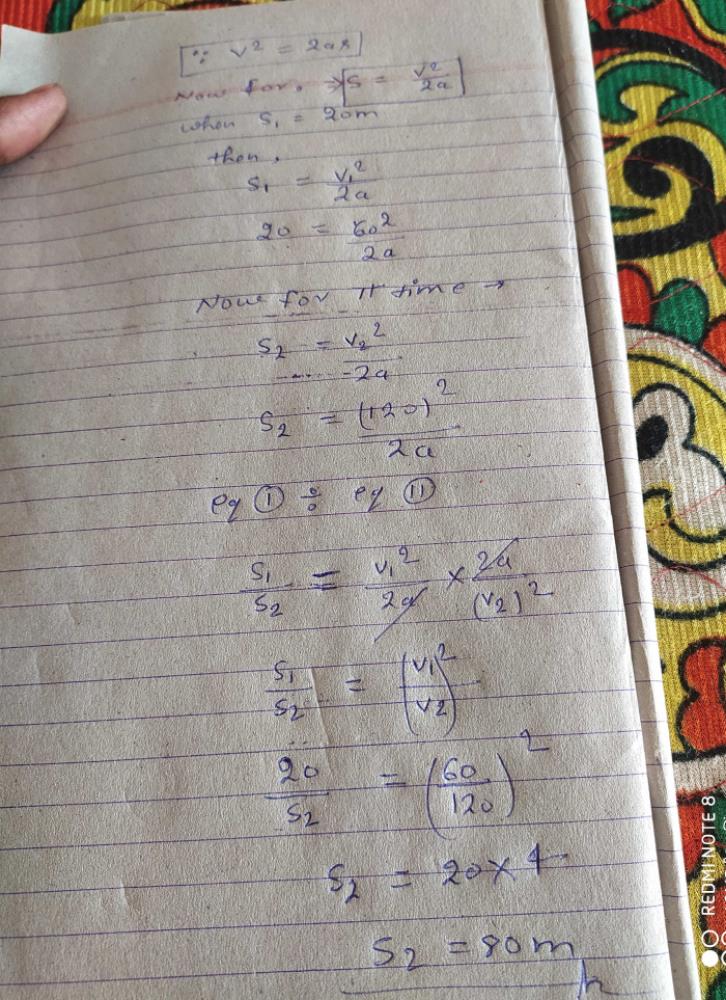 ∵ v² = 2as
Now for, ⇒ s = v²/2a
when s₁ = 20m
then,
s₁ = v₁²/2a
20 = 60²/2a
Now for II time →
s₂ = v₂²/2a
s₂ = (120)²/2a
eq ① ÷ eq ⑪
s₁/s₂ = v₁²/2a × 2a/(v₂)²
s₁/s₂ = (v₁/v₂)²
20/s₂ = (60/120)²
s₂ = 20×4
s₂ = 80m
REDMI NOTE 8